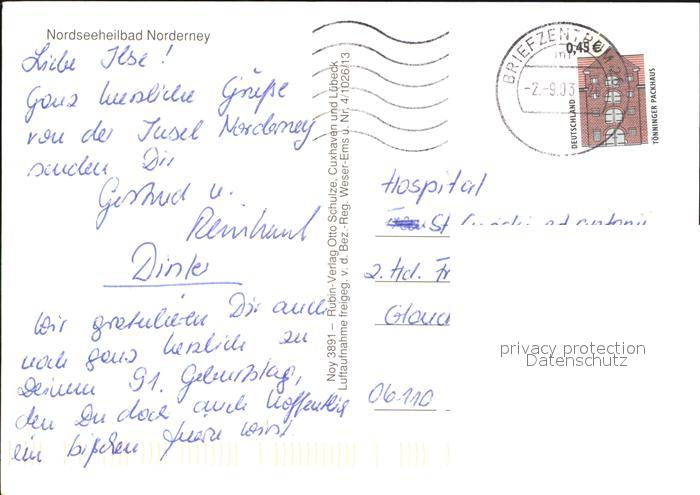 Nordseeheilbad Norderney
Liebe Ilse!
Ganz herzliche Grüße
von der Insel Norderney
senden Dir
Gertrud u.
Reinhard
Dinter
Wir gratulieren Dir auch
noch ganz herzlich zu
Deinem 91. Geburtstag,
den Du doch auch hoffentlich
ein bißchen feiern wirst.
Noy 3891 – Rubin-Verlag Otto Schulze, Cuxhaven und Lübeck
Luftaufnahme freigeg. v. d. Bez.-Reg. Weser-Ems u. Nr. 4/1026/13
BRIEFZENTRUM
-2.-9.03
0,45 €
DEUTSCHLAND
TÖNNINGER PACKHAUS
Hospital
St
z. Hd. Fr
Glauc
06110
privacy protection
Datenschutz